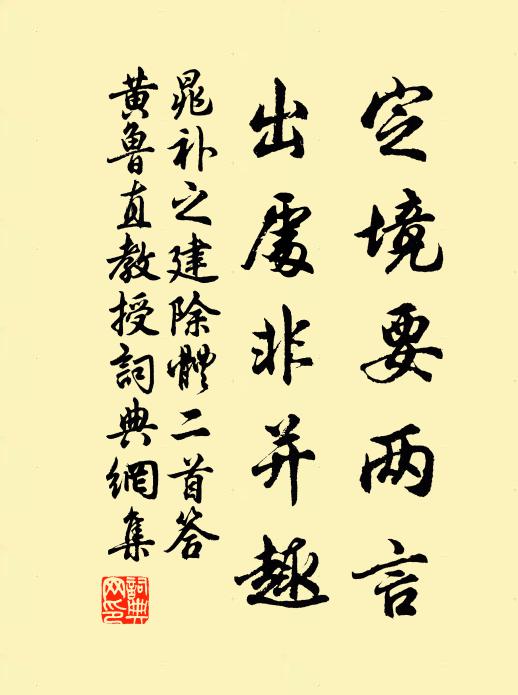 定境要两言
出處非并趣
晁补之建除體二首答
黄魯直教授詞典網集
詞典网印